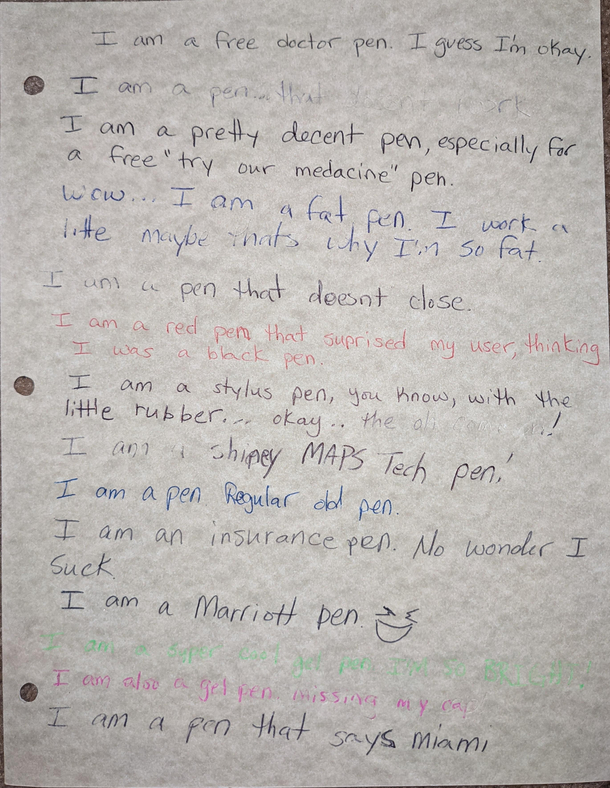 I am a free doctor pen. I guess I'm okay.
I am a pen... that work
I am a pretty decent pen, especially for
a free "try our medacine" pen.
Wow... I am a fat pen. I work a
little maybe thats why I'm so fat.
I am a pen that doesnt close.
I am a red pen that suprised my user, thinking
I was a black pen.
I am a stylus pen, you know, with the
little rubber... okay.. the !
I am a Shipey MAPS Tech pen!
I am a pen Regular old pen.
I am an insurance pen. No wonder I
suck.
I am a Marriott pen.
I am a super cool gel pen I'm SO BRIGHT!
I am also a gel pen missing my cap
I am a pen that says miami